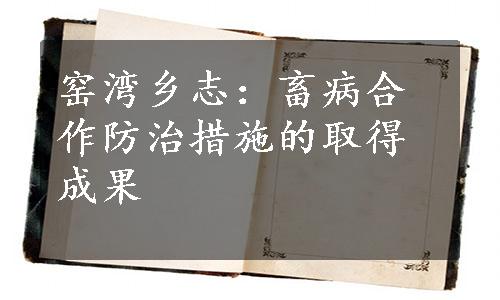 窑湾乡志：畜病合
作防治措施的取得
成果